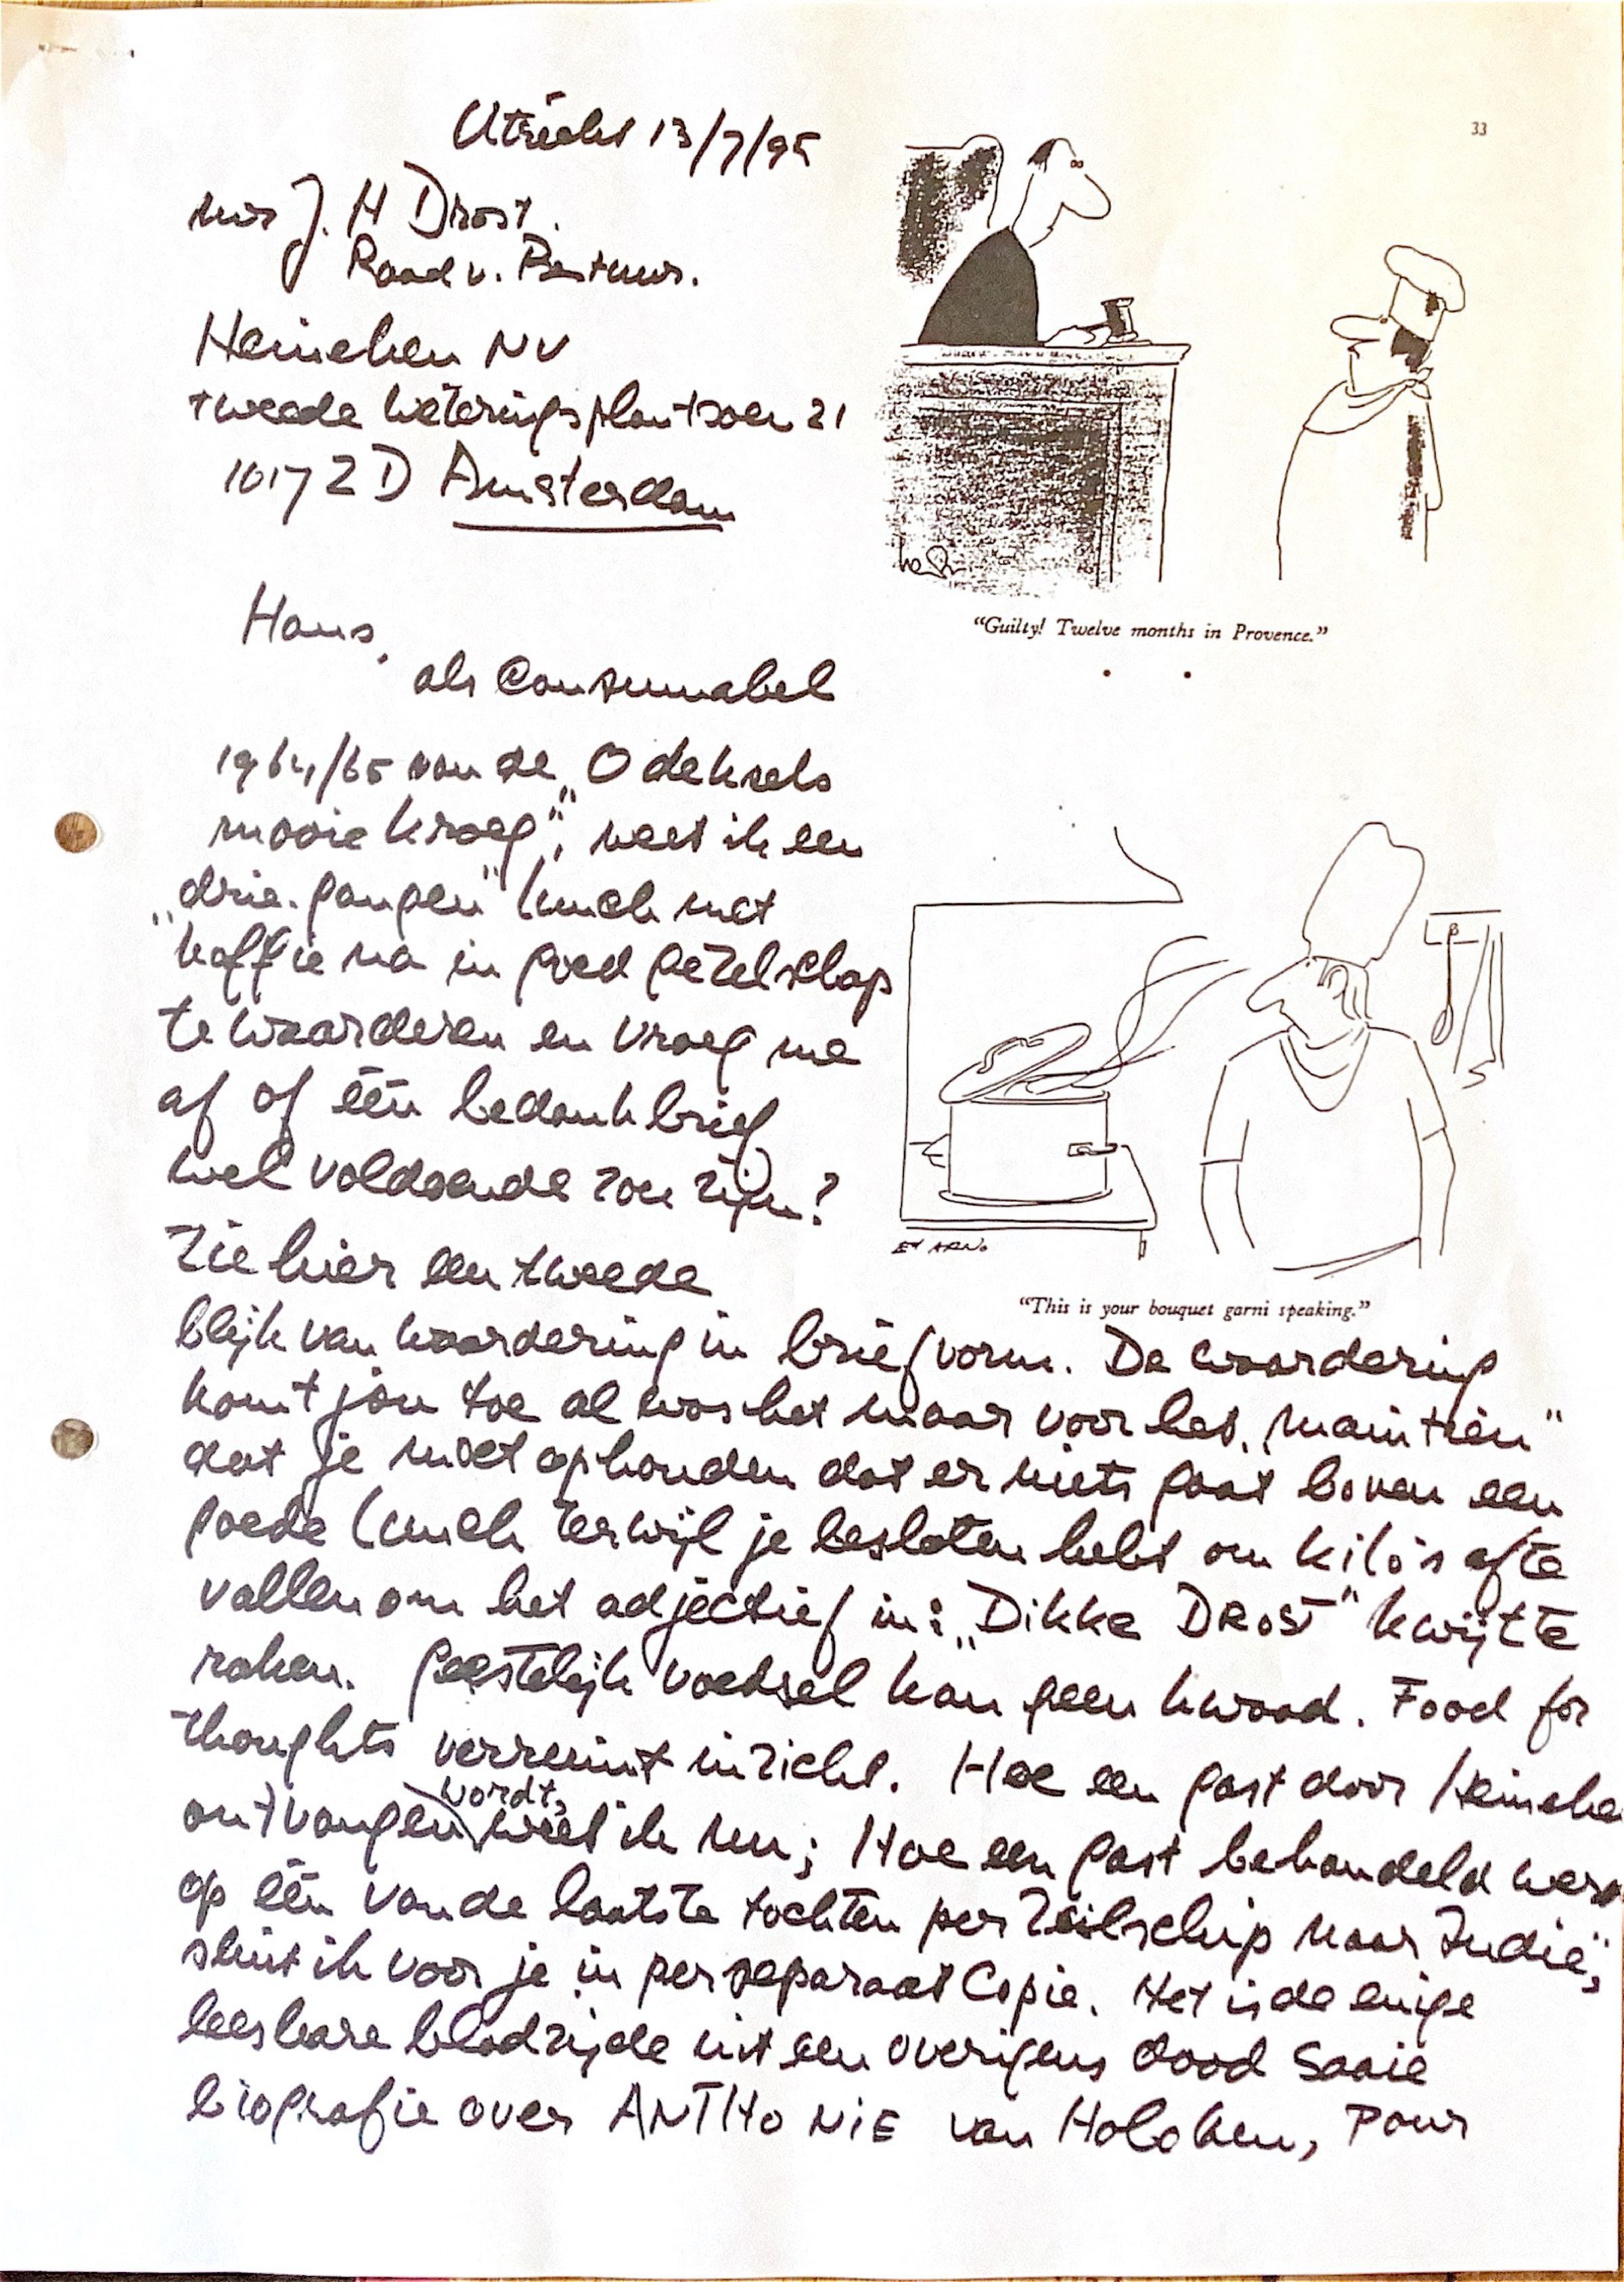 33
Utrecht 13/7/95
mr J. H Drost.
Raad v. Bestuur.
Heineken NV
tweede weteringsplantsoen 21
1017 ZD Amsterdam
"Guilty! Twelve months in Provence."
Hans,
als Consumabel
1964/65 van de „Odeksels
mooie kroeg", weet ik een
„drie-gangen" lunch met
koffie na in goed gezelschap
te waarderen en vroeg me
af of één bedankbrief
wel voldoende zou zijn?
Zie hier een tweede
ED ARNO
"This is your bouquet garni speaking."
blijk van waardering in briefvorm. De waardering
komt jou toe al was het maar voor het „maintien"
dat je moet ophouden dat er niets gaat boven een
goede lunch terwijl je besloten hebt om kilo's af te
vallen om het adjectief in: „Dikke DROST" kwijt te
raken. Geestelijk voedsel kan geen kwaad. Food for
thoughts verruimt inzicht. Hoe een gast door Heineke
ontvangen wordt, weet ik nu; Hoe een gast behandeld werd
op één van de laatste tochten per Zeilschip naar Indië,
sluit ik voor je in per separaat Copie. Het is de enige
leesbare bladzijde uit een overigens dood saaie
biografie over ANTHONIE van Hoboken, pour